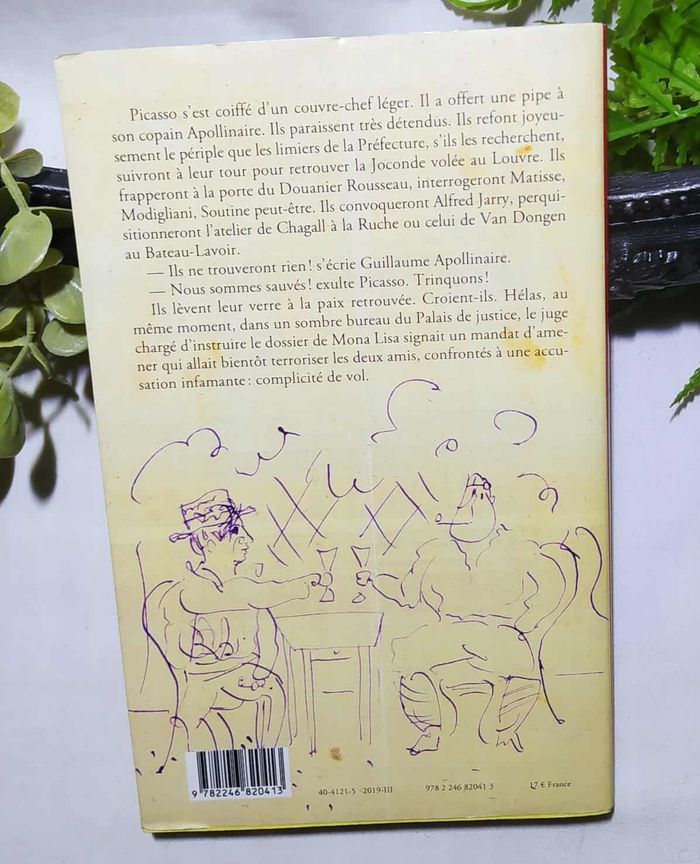 Picasso s'est coiffé d'un couvre-chef léger. Il a offert une pipe à
son copain Apollinaire. Ils paraissent très détendus. Ils refont joyeu-
sement le périple que les limiers de la Préfecture, s'ils les recherchent,
suivront à leur tour pour retrouver la Joconde volée au Louvre. Ils
frapperont à la porte du Douanier Rousseau, interrogeront Matisse,
Modigliani, Soutine peut-être. Ils convoqueront Alfred Jarry, perqui-
sitionneront l'atelier de Chagall à la Ruche ou celui de Van Dongen
au Bateau-Lavoir.
— Ils ne trouveront rien ! s'écrie Guillaume Apollinaire.
— Nous sommes sauvés ! exulte Picasso. Trinquons !
Ils lèvent leur verre à la paix retrouvée. Croient-ils. Hélas, au
même moment, dans un sombre bureau du Palais de justice, le juge
chargé d'instruire le dossier de Mona Lisa signait un mandat d'ame-
ner qui allait bientôt terroriser les deux amis, confrontés à une accu-
sation infamante : complicité de vol.
9 782246 820413
40-4121-5 2019-III
978 2 246 82041 3
17 € France